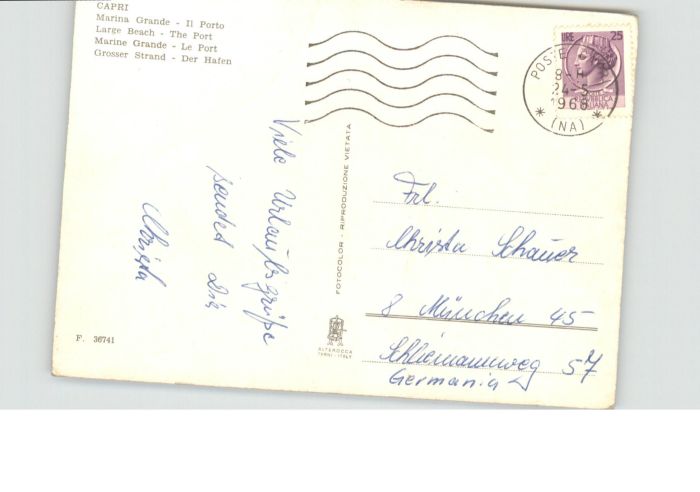 CAPRI
Marina Grande - Il Porto
Large Beach - The Port
Marine Grande - Le Port
Grosser Strand - Der Hafen
LIRE 25
POSTE
8-H
24-5
1968
(NA)
Viele Urlaubsgrüße
sendet Dir
Christa
FOTOCOLOR - RIPRODUZIONE VIETATA
Frl.
Christa Schauer
8 München 45
Schliemannweg 57
Germania
F. 36741
ALTEROCCA
TERNI - ITALY